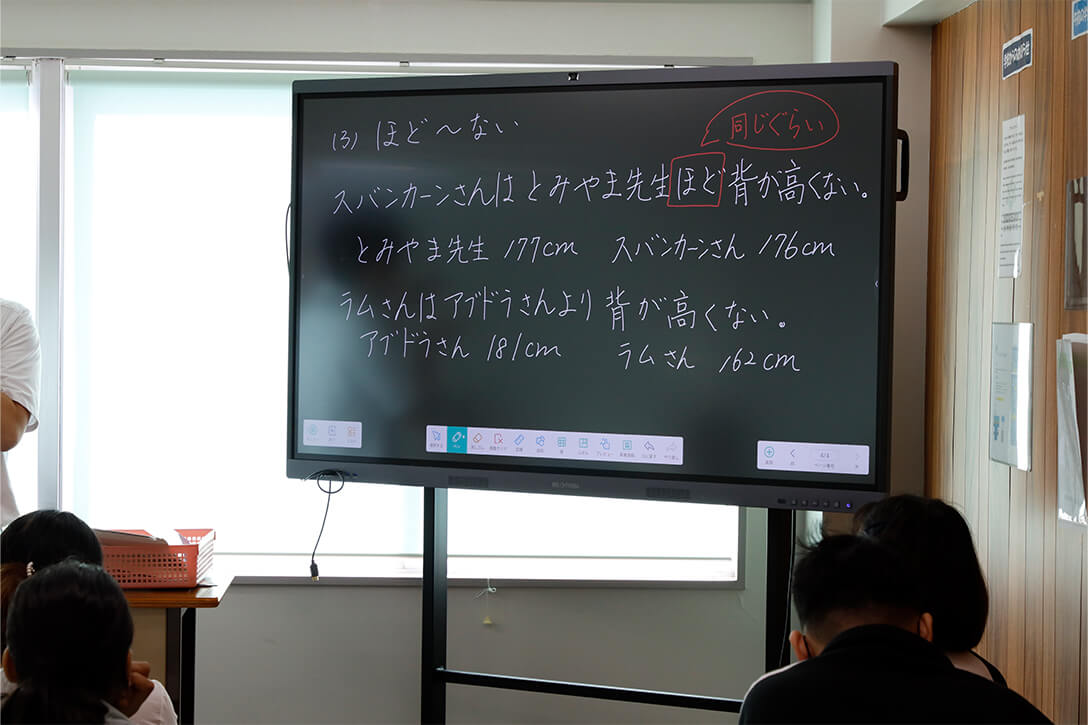 (3) ほど〜ない
同じぐらい
スバンカーンさんはとみやま先生ほど背が高くない。
とみやま先生 177cm スバンカーンさん 176cm
ラムさんはアブドラさんより背が高くない。
アブドラさん 181cm ラムさん 162cm
4/4